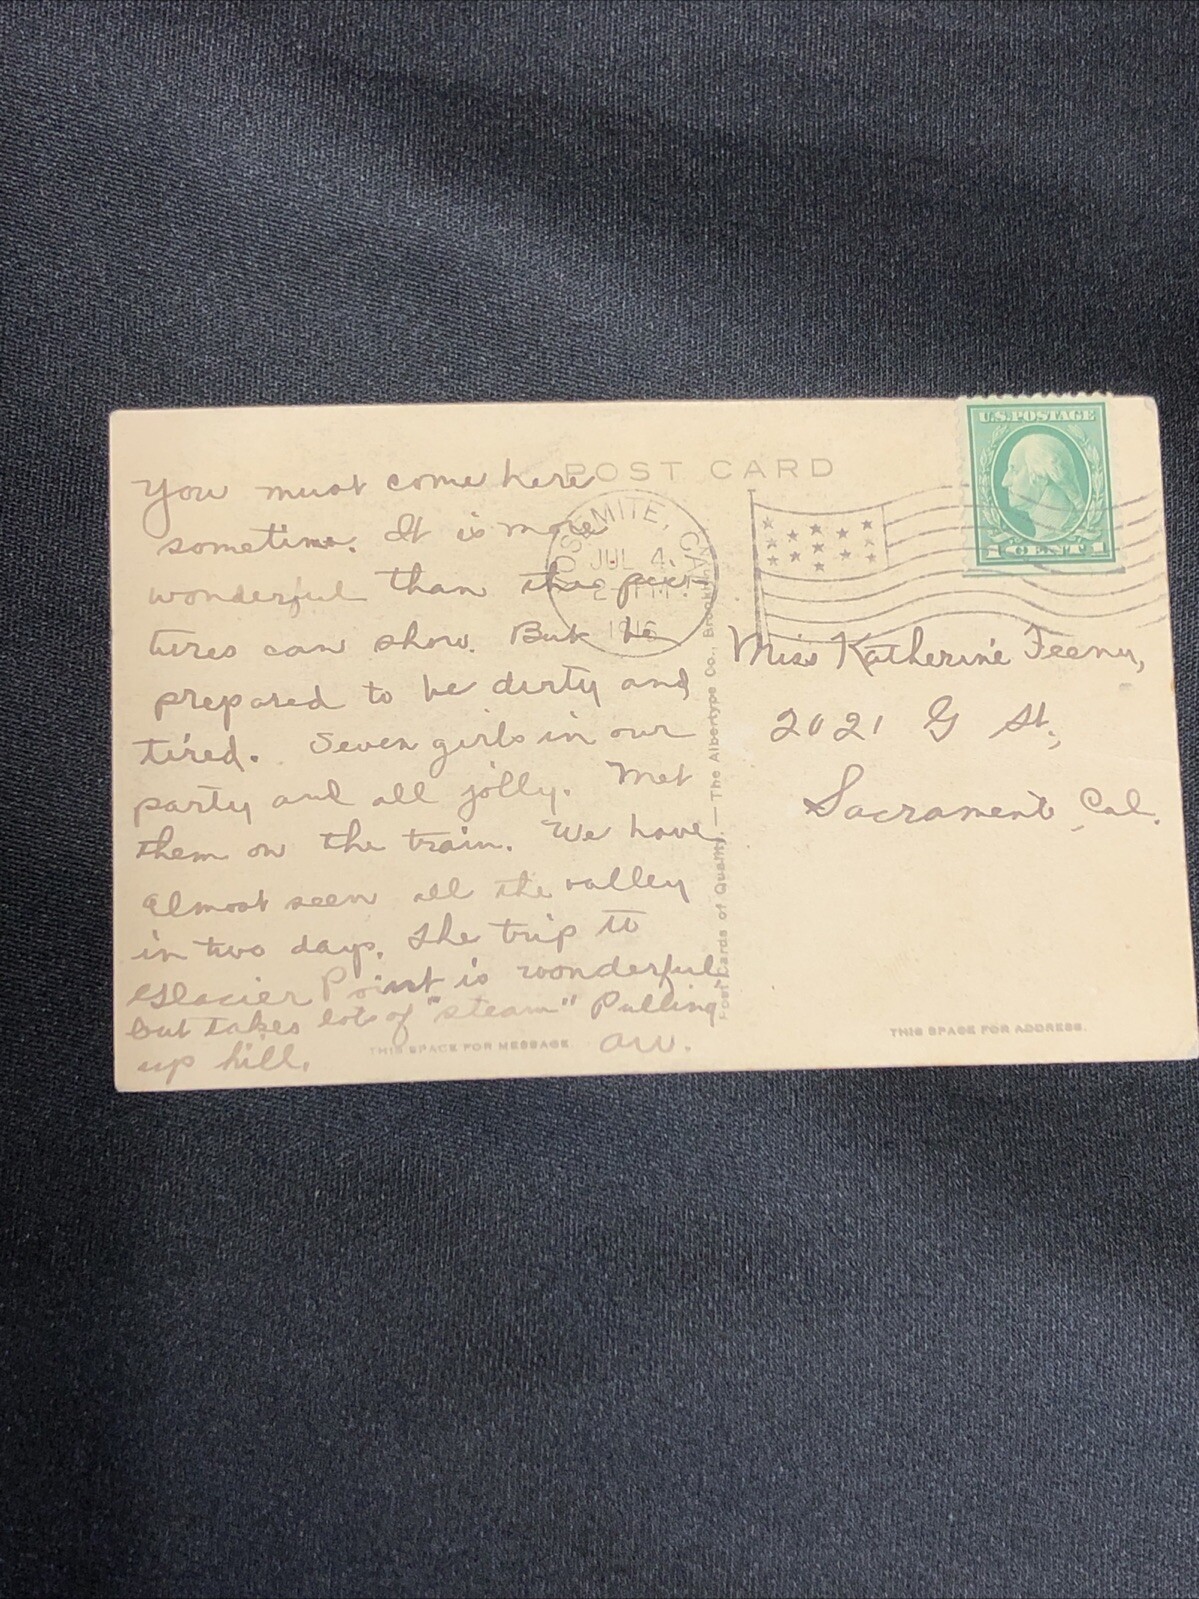 POST CARD
U.S. POSTAGE
1 CENT 1
YOSEMITE, CAL.
JUL 4
2 PM
1916
You must come here
sometime. It is more
wonderful than the pic-
tures can show. But be
prepared to be dirty and
tired. Seven girls in our
party and all jolly. Met
them on the train. We have
almost seen all the valley
in two days. The trip to
Glacier Point is wonderful
but takes lots of "steam" Pulling
up hill. AW.
THIS SPACE FOR MESSAGE
Post Cards of Quality.—The Albertype Co., Brooklyn, N.Y.
Miss Katherine Feeny,
2021 G St.,
Sacramento, Cal.
THIS SPACE FOR ADDRESS.